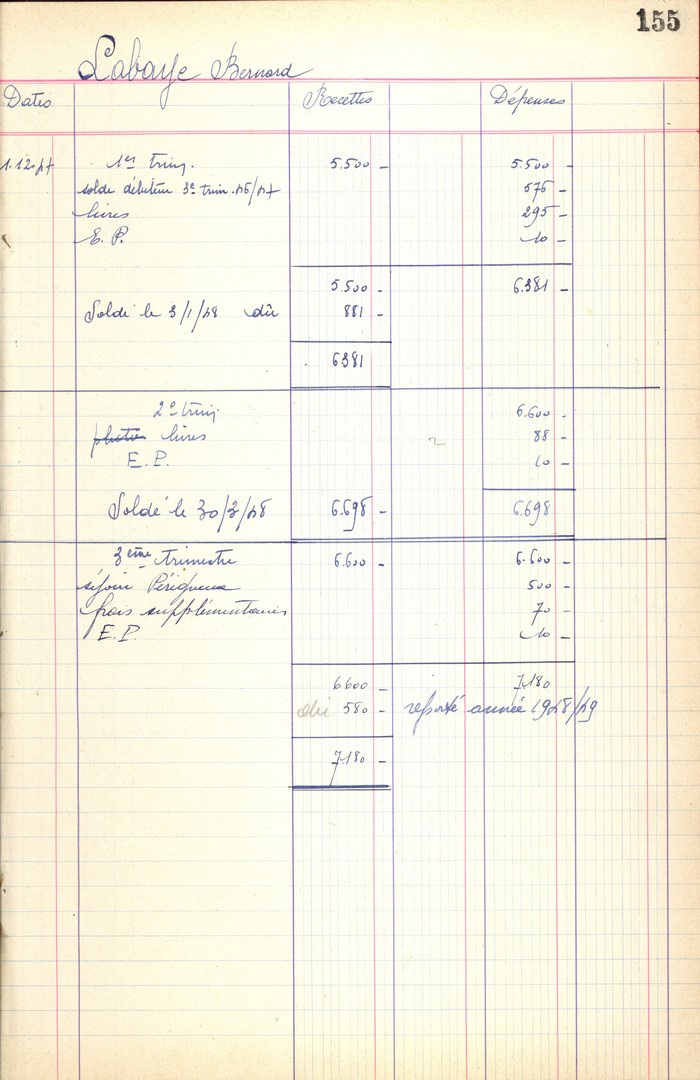 155
Labaye Bernard
Dates Recettes Dépenses
1.12.47 1er trim. 5.500 - 5.500 -
solde débiteur 3e trim. 46/47 576 -
livres 295 -
E. P. 10 -
5.500 - 6.381 -
Solde le 3/1/48 dû 881 -
6381
2e trim. 6.600 -
livres 88 -
E. P. 10 -
Soldé le 30/3/48 6.698 - 6.698
3ème trimestre 6.600 - 6.600 -
séjour Périgueux 500 -
frais supplémentaires 70 -
E. P. 10 -
6600 - 7.180
dû 580 - reporté année 1948/49
7.180 -